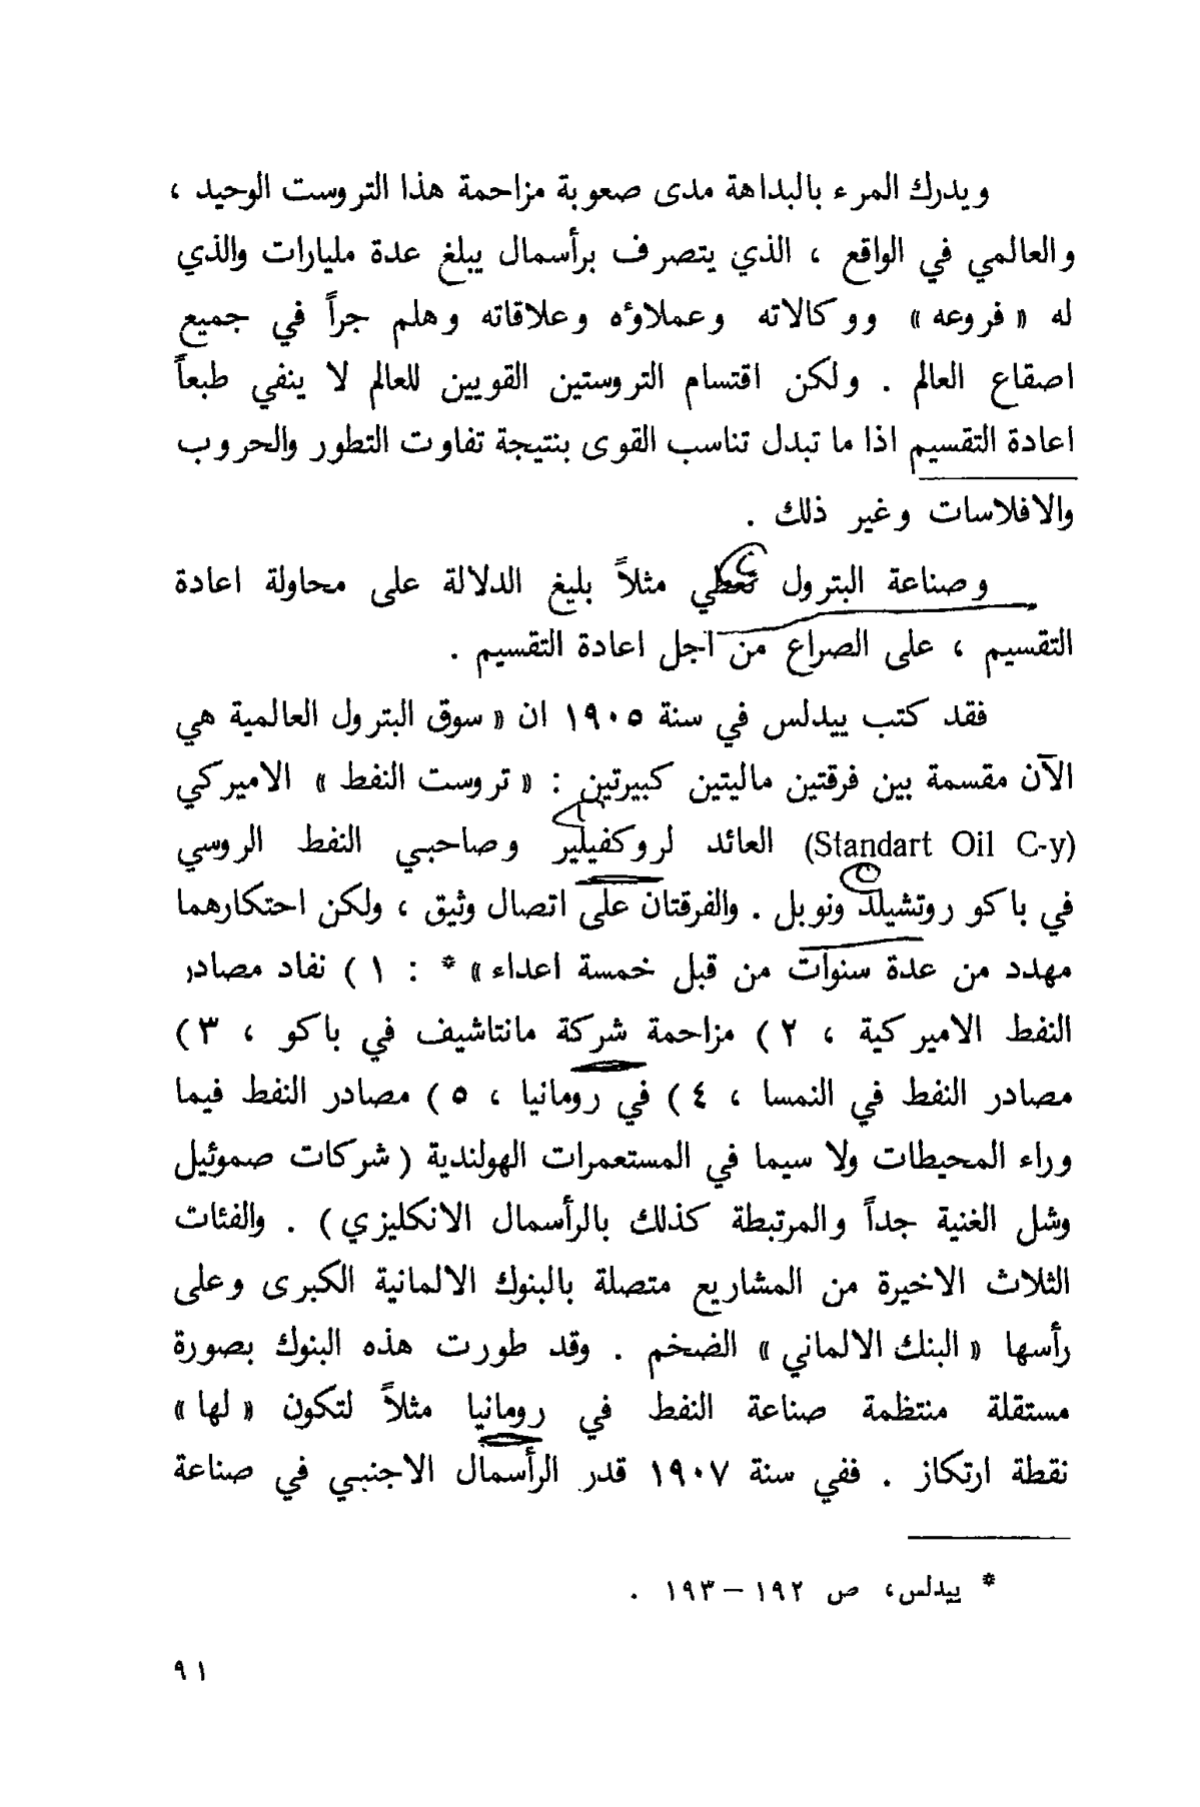 ويدرك المرء بالبداهة مدى صعوبة مزاحمة هذا التروست الوحيد ،
والعالمي في الواقع ، الذي يتصرف برأسمال يبلغ عدة مليارات والذي
له « فروعه » ووكالاته وعملاؤه وعلاقاته وهلم جراً في جميع
اصقاع العالم . ولكن اقتسام التروستين القويين للعالم لا ينفي طبعاً
اعادة التقسيم اذا ما تبدل تناسب القوى بنتيجة تفاوت التطور والحروب
والافلاسات وغير ذلك .
وصناعة البترول تعطي مثلاً بليغ الدلالة على محاولة اعادة
التقسيم ، على الصراع من اجل اعادة التقسيم .
فقد كتب ييدلس في سنة ١٩٠٥ ان « سوق البترول العالمية هي
الآن مقسمة بين فرقتين ماليتين كبيرتين : « تروست النفط » الاميركي
(Standart Oil C-y) العائد لروكفيلير وصاحبي النفط الروسي
في باكو روتشيلد ونوبل . والفرقتان على اتصال وثيق ، ولكن احتكارهما
مهدد من عدة سنوات من قبل خمسة اعداء » * : ١ ) نفاد مصادر
النفط الاميركية ، ٢ ) مزاحمة شركة مانتاشيف في باكو ، ٣ )
مصادر النفط في النمسا ، ٤ ) في رومانيا ، ٥ ) مصادر النفط فيما
وراء المحيطات ولا سيما في المستعمرات الهولندية ( شركات صموئيل
وشل الغنية جداً والمرتبطة كذلك بالرأسمال الانكليزي ) . والفئات
الثلاث الاخيرة من المشاريع متصلة بالبنوك الالمانية الكبرى وعلى
رأسها « البنك الالماني » الضخم . وقد طورت هذه البنوك بصورة
مستقلة منتظمة صناعة النفط في رومانيا مثلاً لتكون « لها »
نقطة ارتكاز . ففي سنة ١٩٠٧ قدر الرأسمال الاجنبي في صناعة
* ييدلس، ص ١٩٢ – ١٩٣ .
٩١